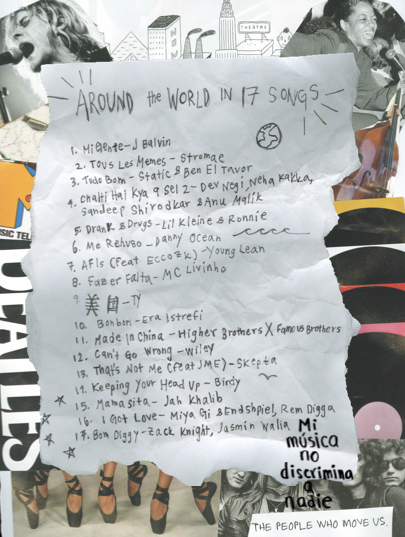 THEATRE
AROUND the WORLD IN 17 SONGS
1. Mi Gente - J Balvin
2. Tous Les Memes - Stromae
3. Tudo Bom - Static & Ben El Tavor
4. Chalti Hai Kya 9 Sel 2 - Dev Negi, Neha Kakka,
Sandeep Shirodkar & Anu Malik
5. Drank & Drugs - Lil Kleine & Ronnie
6. Me Rehuso - Danny Ocean
7. AFIs (feat Ecco2K) - Young Lean
8. Fazer Falta - MC Livinho
9. - TY
10. Bonbon - Era Istrefi
11. Made In China - Higher Brothers X Famous Brothers
12. Can't Go Wrong - Wiley
13. That's Not Me (feat JME) - Skepta
14. Keeping Your Head Up - Birdy
15. Mamasita - Jah Khalib
16. I Got Love - Miya Gi & Endshpiel, Rem Digga
17. Bom Diggy - Zack Knight, Jasmin Walia
Mi
música
no
discrimina
a
nadie
MUSIC TEL
BEATLES
THE PEOPLE WHO MOVE US.